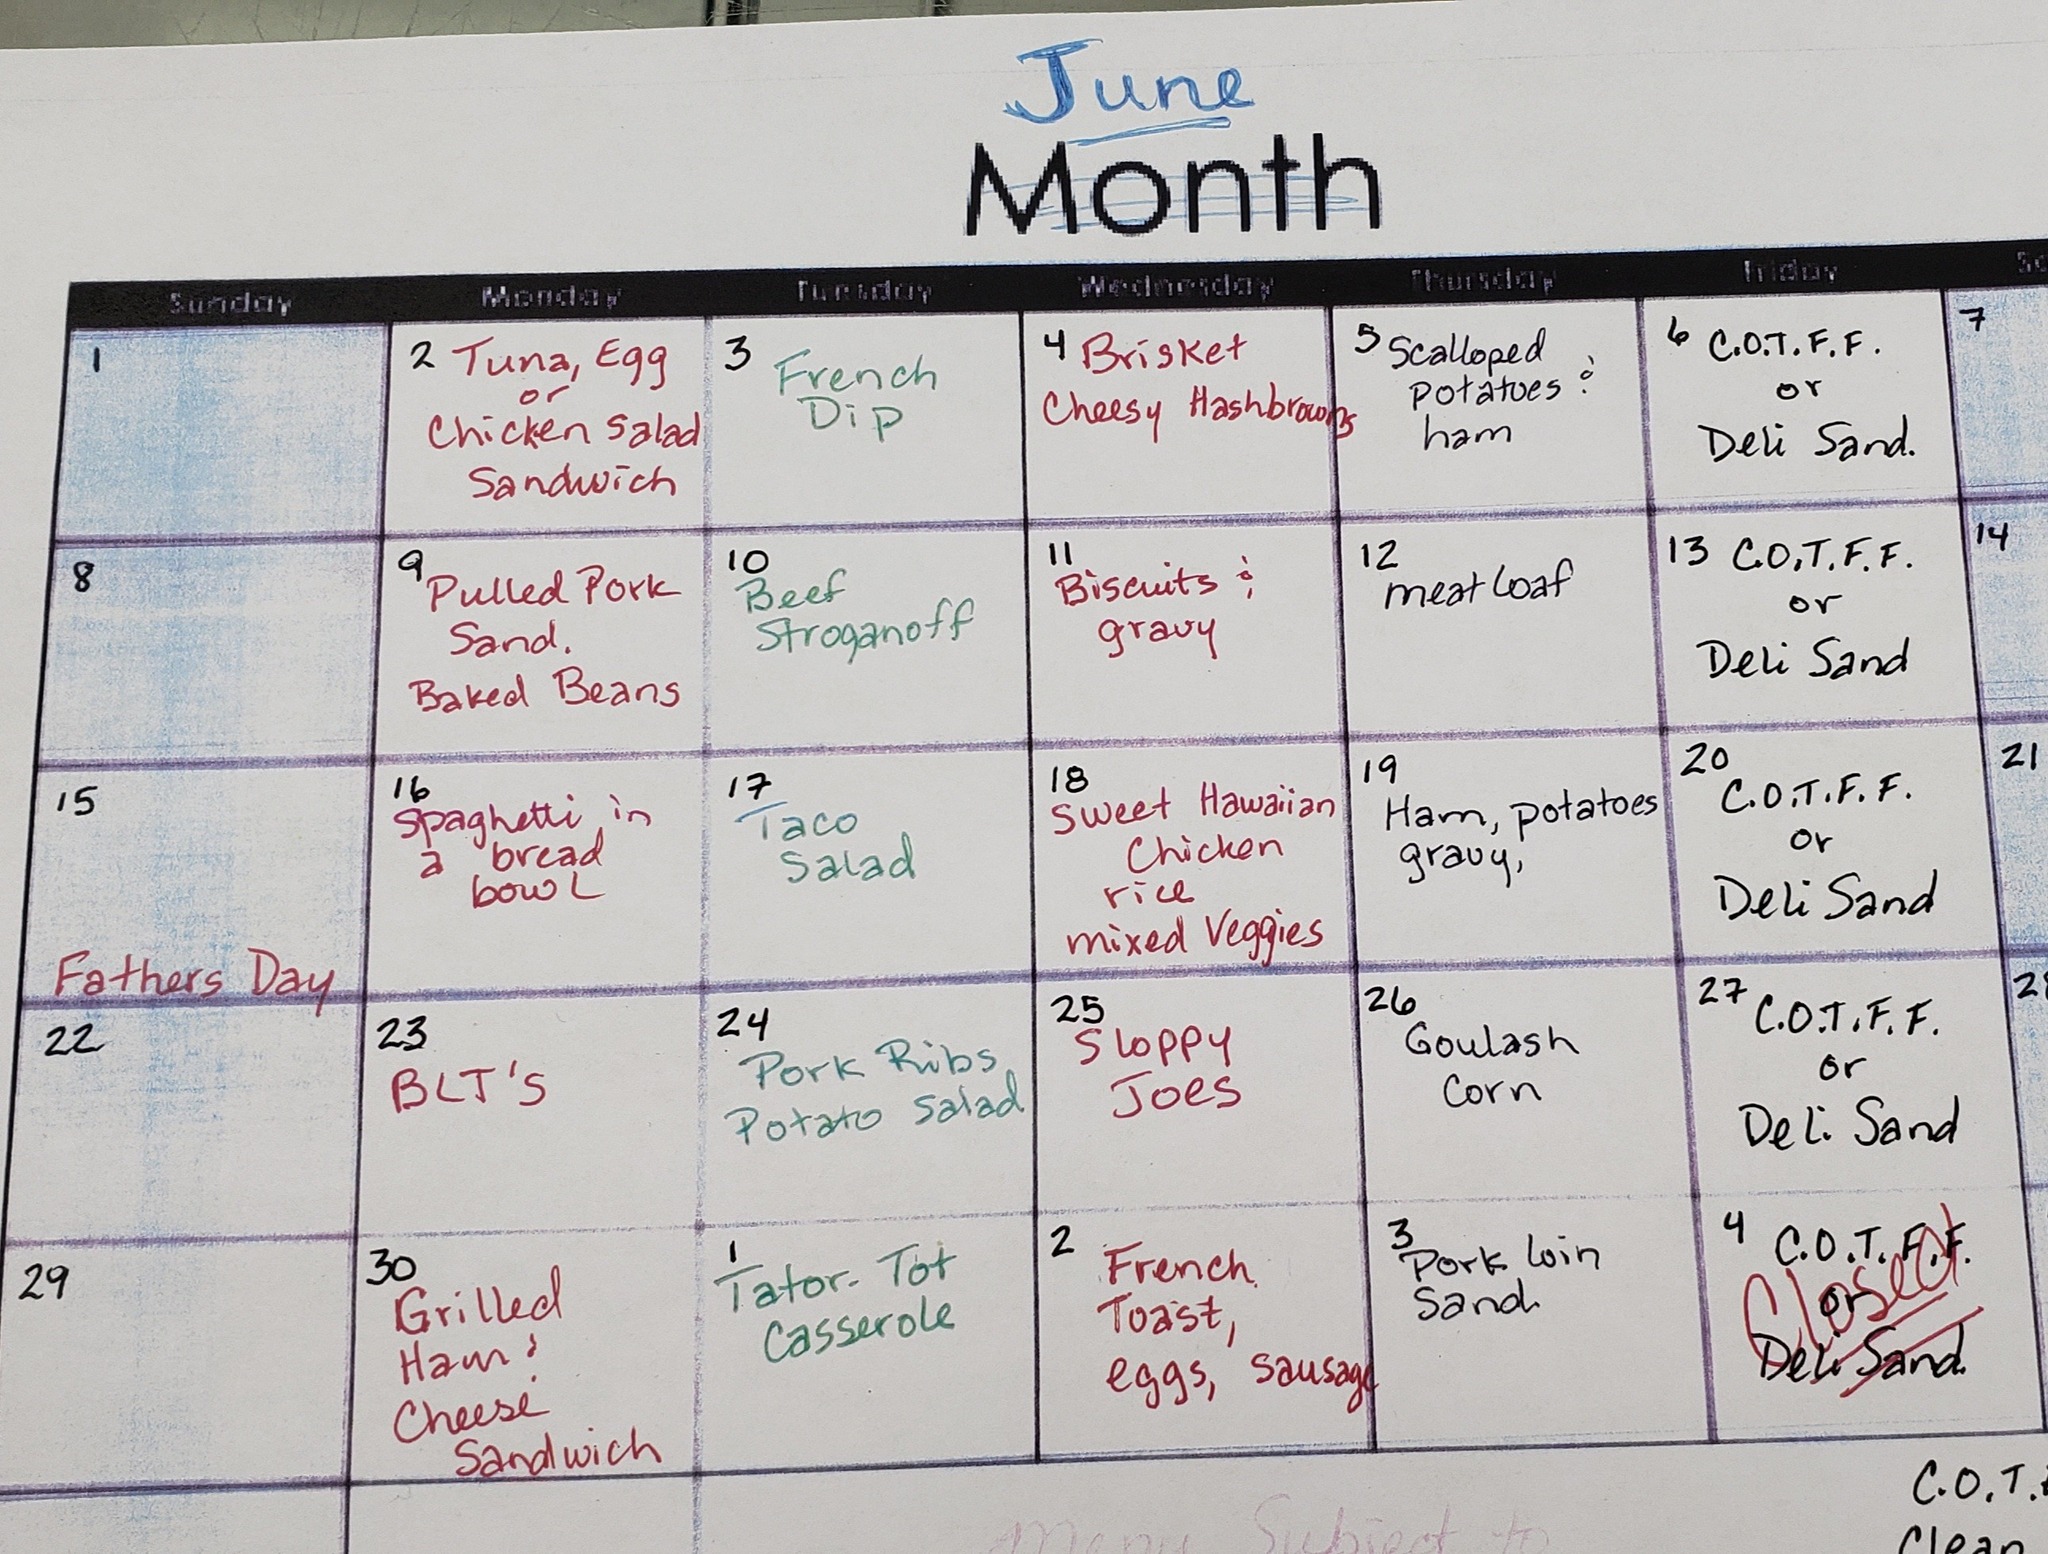 June
Month
Sunday Monday Tuesday Wednesday Thursday Friday
1
2 Tuna, Egg
or
Chicken Salad
Sandwich
3
French
Dip
4 Brisket
Cheesy Hashbrowns
5 Scalloped
potatoes &
ham
6 C.O.T.F.F.
or
Deli Sand.
7
8
9 Pulled Pork
Sand.
Baked Beans
10
Beef
Stroganoff
11
Biscuits &
gravy
12
meatloaf
13 C.O.T.F.F.
or
Deli Sand
14
15
Fathers Day
16
Spaghetti in
a bread
bowl
17
Taco
Salad
18
Sweet Hawaiian
Chicken
rice
mixed Veggies
19
Ham, potatoes
gravy,
20
C.O.T.F.F.
or
Deli Sand
21
22
23
BLT's
24
Pork Ribs
Potato salad
25
Sloppy
Joes
26
Goulash
Corn
27 C.O.T.F.F.
or
Deli Sand
28
29
30
Grilled
Ham &
Cheese
Sandwich
1
Tator-Tot
Casserole
2
French
Toast,
eggs, sausage
3
Pork loin
Sand.
4 C.O.T.F.F.
or
Deli Sand.
Closed
Menu Subject to
C.O.T.
Clean